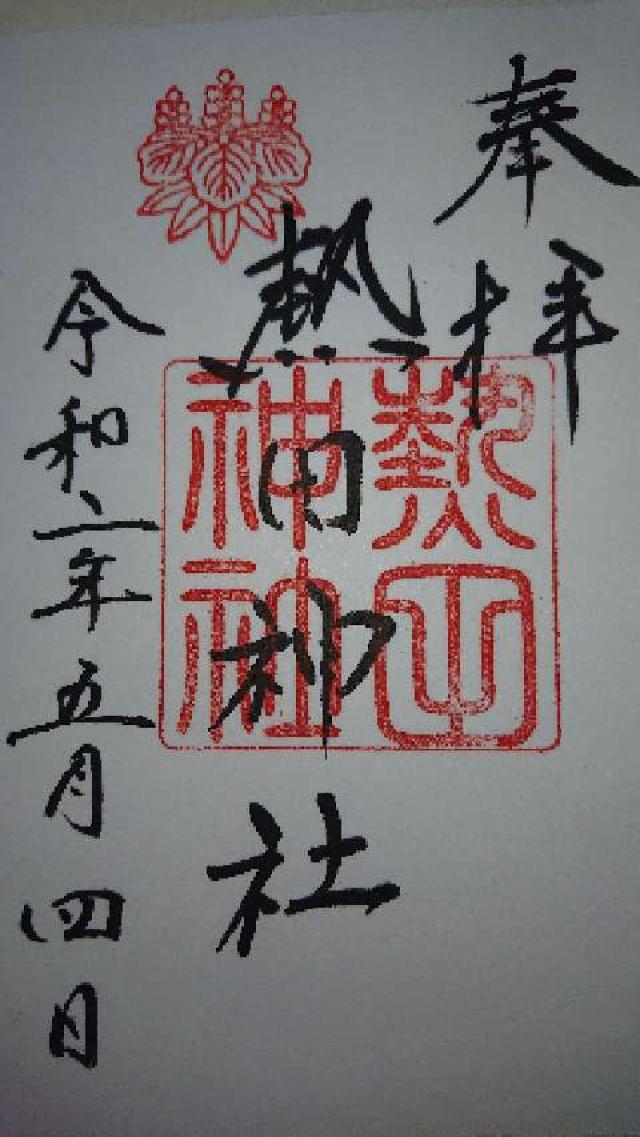 奉拝
熱田神社
熱田神社
令和二年五月四日